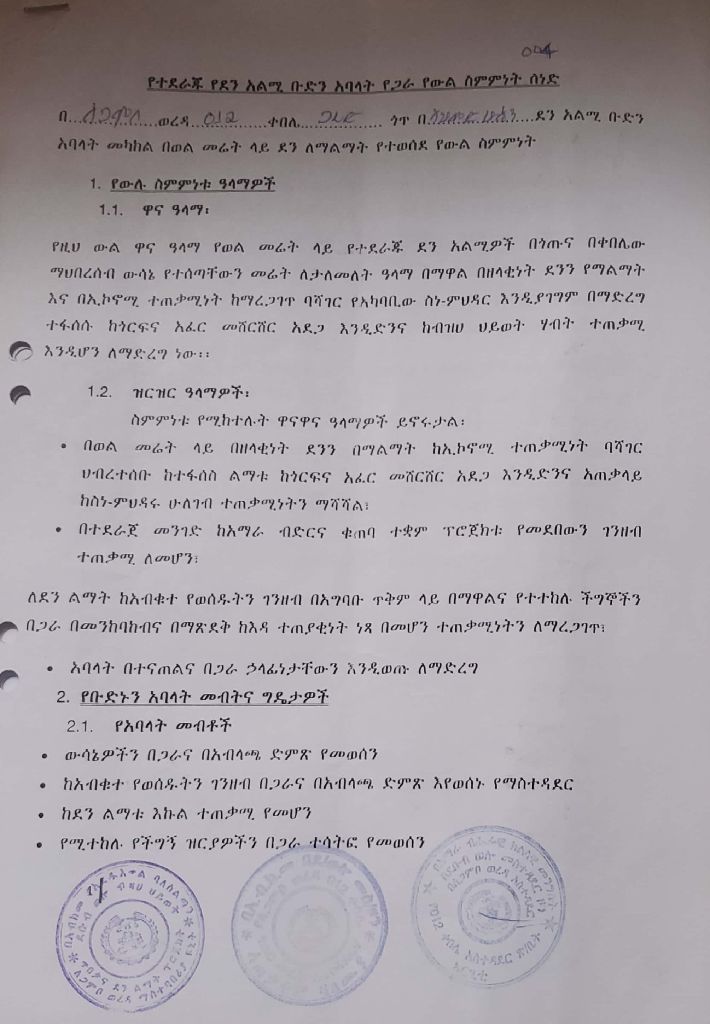 004
የተደራጁ የደን አልሚ ቡድን አባላት የጋራ የውል ስምምነት ሰነድ
በ... ለጋምቦ ...ወረዳ... 012 ...ቀበሌ... ...ጎጥ በ... ...ደን አልሚ ቡድን
አባላት መካከል በወል መሬት ላይ ደን ለማልማት የተወሰደ የውል ስምምነት
1. የውሉ ስምምነቱ ዓላማዎች
1.1. ዋና ዓላማ፡
የዚህ ውል ዋና ዓላማ የወል መሬት ላይ የተደራጁ ደን አልሚዎች በጎጡና በቀበሌው
ማህበረሰብ ውሳኔ የተሰጣቸውን መሬት ለታለመለት ዓላማ በማዋል በዘላቂነት ደንን የማልማት
እና በኢኮኖሚ ተጠቃሚነት ከማረጋገጥ ባሻገር የአካባቢው ስነ-ምህዳር እንዲያገግም በማድረግ
ተፋሰሱ ከጎርፍና አፈር መሸርሸር አደጋ እንዲድንና ከብዝሀ ህይወት ሃብት ተጠቃሚ
እንዲሆን ለማድረግ ነው፡፡
1.2. ዝርዝር ዓላማዎች፡
ስምምነቱ የሚከተሉት ዋናዋና ዓላማዎች ይኖሩታል፡
• በወል መሬት ላይ በዘላቂነት ደንን በማልማት ከኢኮኖሚ ተጠቃሚነት ባሻገር
ህብረተሰቡ ከተፋሰስ ልማቱ ከጎርፍና አፈር መሸርሸር አደጋ እንዲድንና አጠቃላይ
ከስነ-ምህዳሩ ሁለገብ ተጠቃሚነትን ማሻሻል፤
• በተደራጀ መንገድ ከአማራ ብድርና ቁጠባ ተቋም ፕሮጀክቱ የመደበውን ገንዘብ
ተጠቃሚ ለመሆን፤
ለደን ልማት ከአብቁተ የወሰዱትን ገንዘብ በአግባቡ ጥቅም ላይ በማዋልና የተተከሉ ችግኞችን
በጋራ በመንከባከብና በማጽደቅ ከእዳ ተጠያቂነት ነጻ በመሆን ተጠቃሚነትን ለማረጋገጥ፤
• አባላት በተናጠልና በጋራ ኃላፊነታቸውን እንዲወጡ ለማድረግ
2. የቡድኑን አባላት መብትና ግዴታዎች
2.1. የአባላት መብቶች
• ውሳኔዎችን በጋራና በአብላጫ ድምጽ የመወሰን
• ከአብቁተ የወሰዱትን ገንዘብ በጋራና በአብላጫ ድምጽ እየወሰኑ የማስተዳደር
• ከደን ልማቱ እኩል ተጠቃሚ የመሆን
• የሚተከሉ የችግኝ ዝርያዎችን በጋራ ተሳትፎ የመወሰን